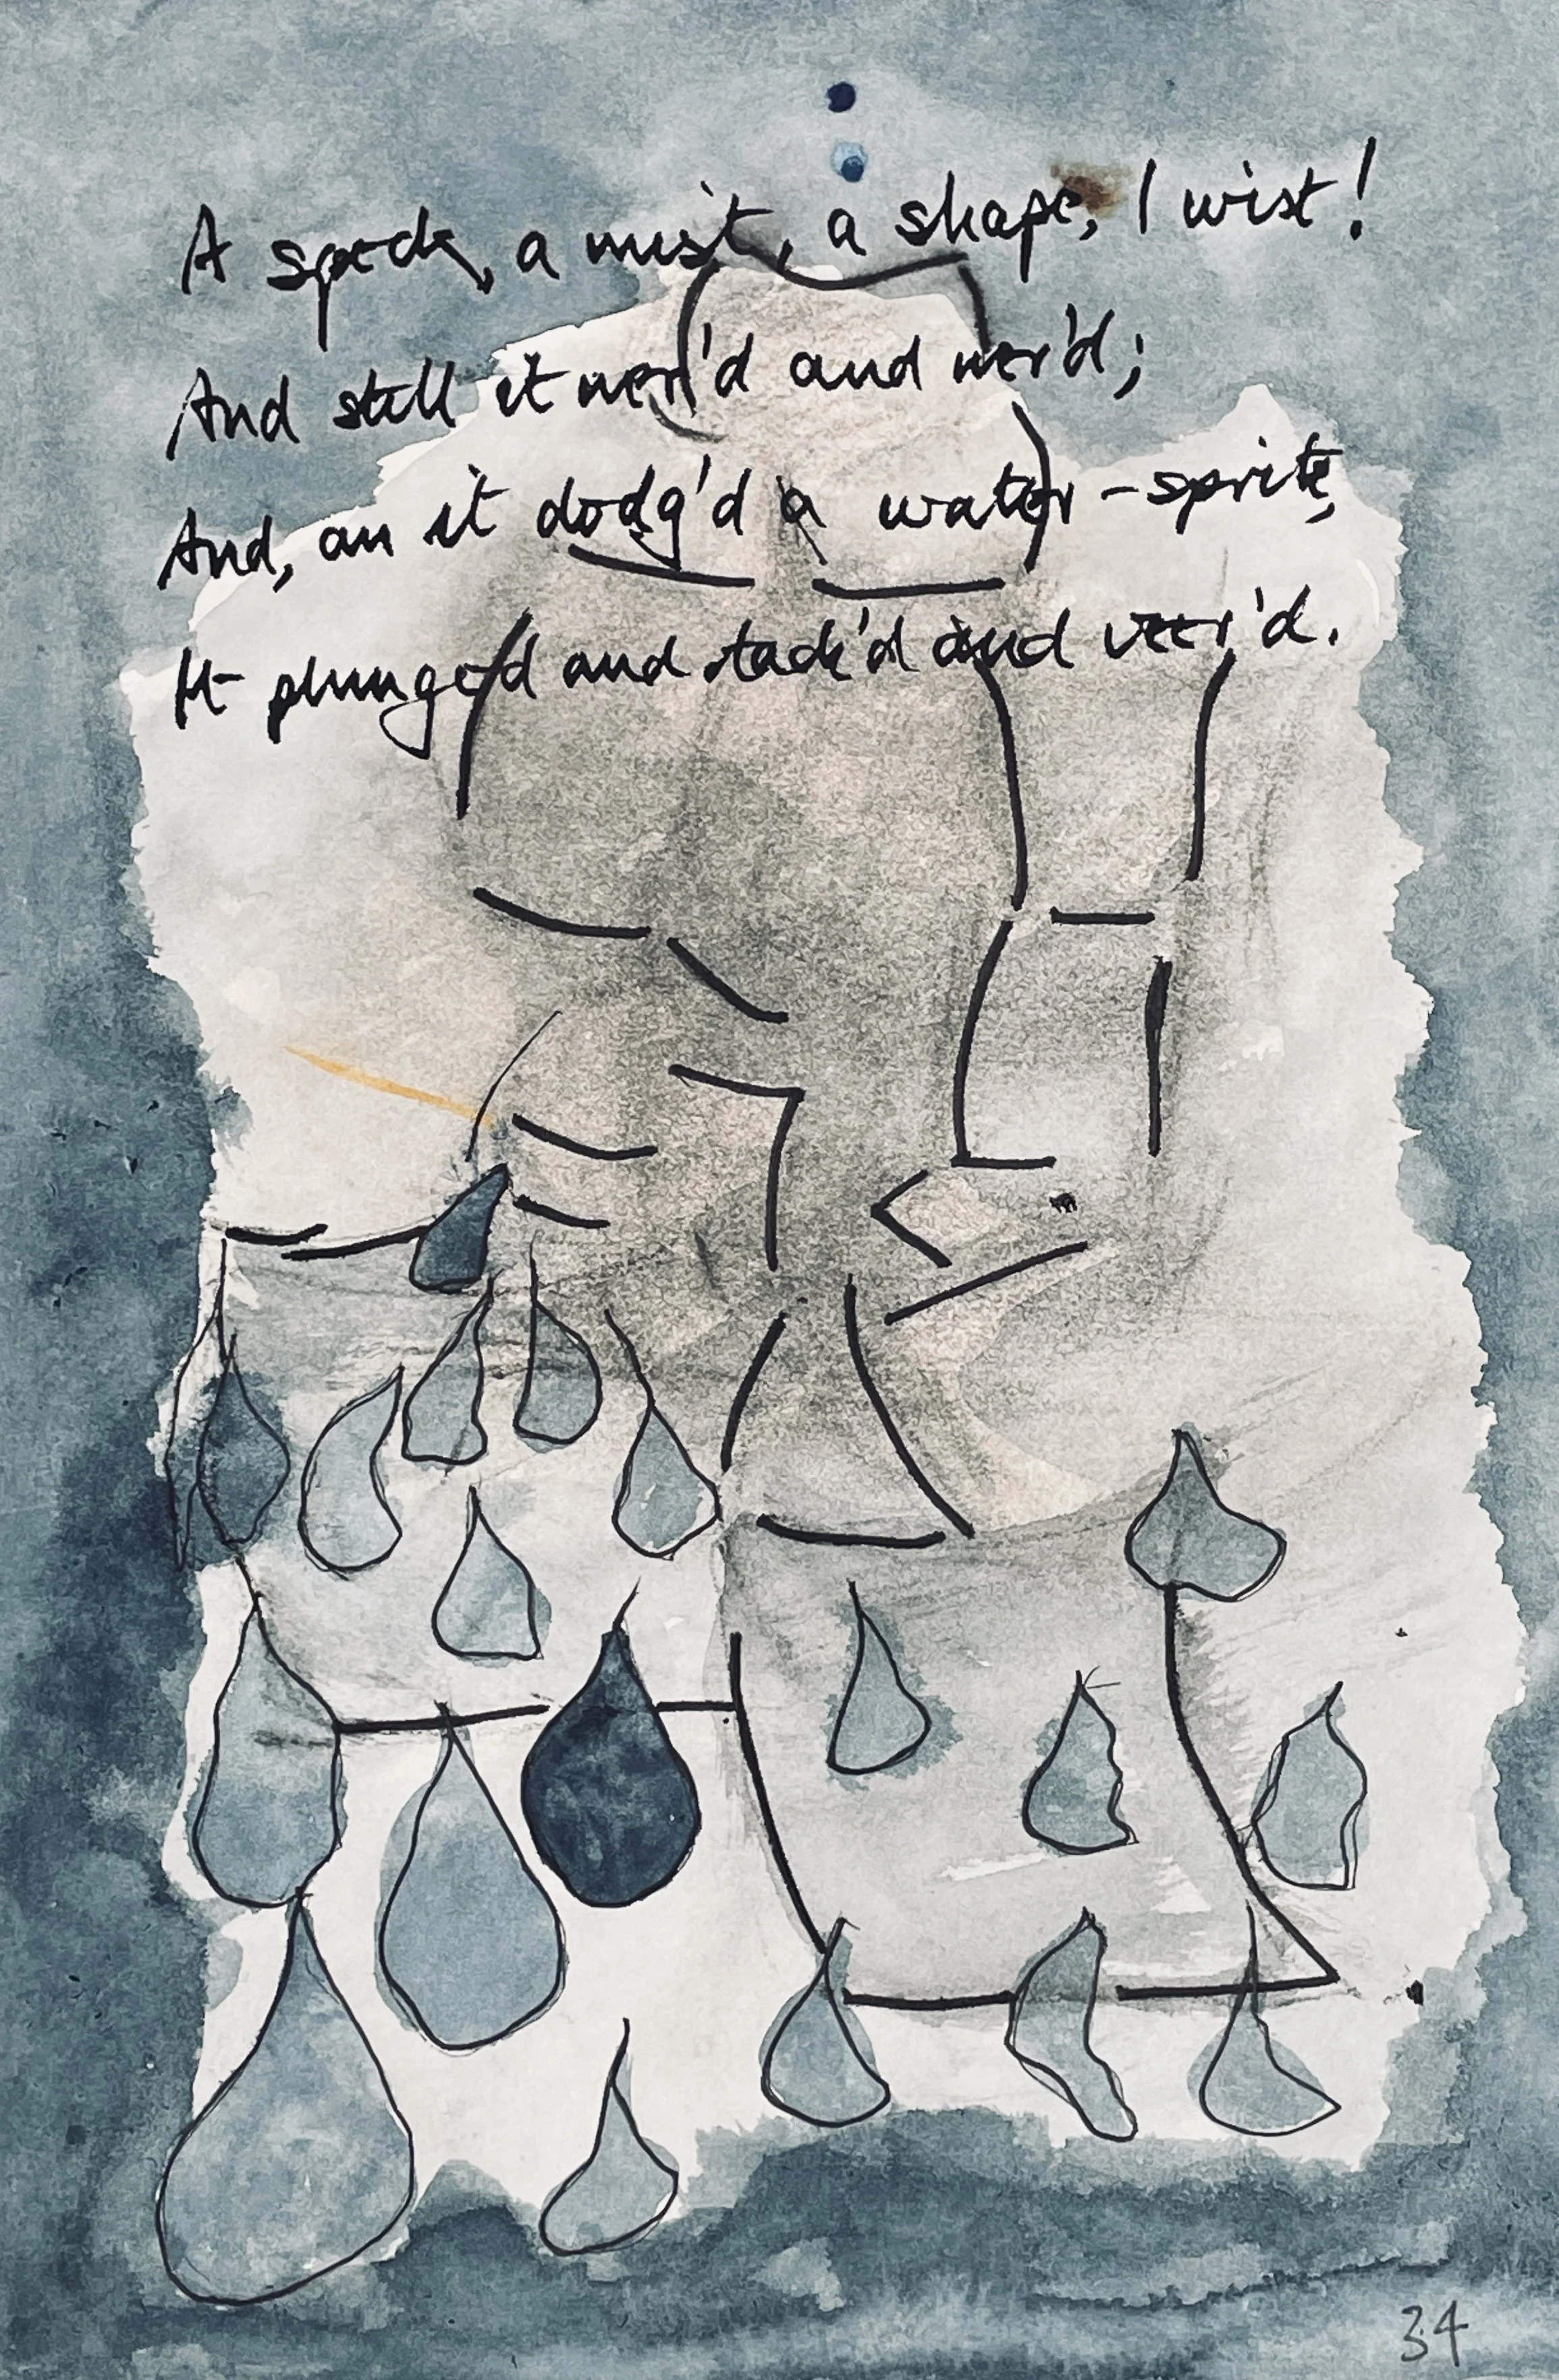 A speck, a mist, a shape, I wist!
And still it ner'd and ner'd;
And, an it dodg'd a water-sprite,
It plunged and tack'd and veer'd.
34